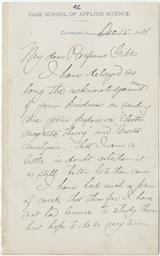 42
CASE SCHOOL OF APPLIED SCIENCE.
CLEVELAND, Dec 15
My dear Professor Gibbs
I have delayed so
long the acknowledgment
of your kindness in sending
me your papers on Electro
magnetic theory and Vector
Analysis, that I am a
little in doubt whether it
is still better late than never.
I have had such a
of work that thus far I have
not had leisure to study them
but hope to do so very soon